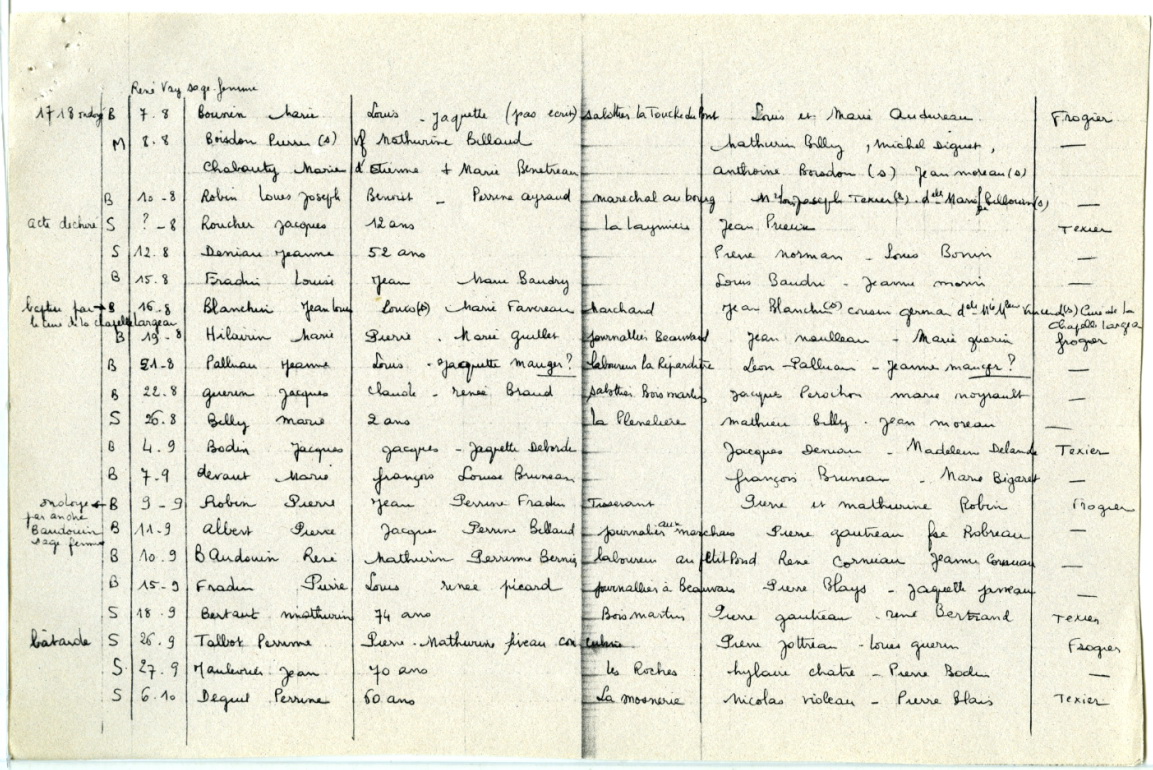 René Vay sage-femme
1718 ondoy B 7.8 Bouvin Marie Louis - Jaquette (pas ecrit) sabotier la Touche du Pont Louis et Marie Audureau Frogier
M 8.8 Boisdon Pierre (s) vf Mathurine Billaud Mathurin Billy, Michel Diguet, —
Chabauty Marie d Etienne + Marie Benetreau Anthoine Boisdon (s) Jean Moreau (s)
B 10-8 Robin Louis Joseph Benoist - Perrine Ayraud marechal au bourg Joseph Texier (s) . —
acte dechiré S ?-8 Roucher Jacques 12 ans Jean Texier
S 12.8 Deniau Jeanne 52 ans Pierre Norman - Louis Bonin —
B 15.8 Fradin Louise Jean Marie Baudry Louis Baudri - Jeanne Morin —
par B 16-8 Blanchin Jean Louis Louis (s) Marie Favereau Marchand Jean Blanchin (s) cousin germain Vincend (s) Curé de la
le curé de la chapelle largeau Chapelle largea
B 19-8 Hilairin Marie Pierre . Marie Guillet journallier Beauvais Jean Naulleau - Marie Guerin frogier
B 21-8 Palluau Jeanne Louis - Jaquette Mauger? laboureur la Ripardière Léon Palluau - Jeanne Mauger? —
B 22.8 Guerin Jacques Claude - renée Braud sabottier Boismartin Jacques Perochon Marie Noyrault —
S 26.8 Billy Marie 2 ans la Pleneliere Mathieu Billy . Jean Moreau —
B 4.9 Bodin Jacques Jacques - Jaquette Deborde Jacques Deniau - Madeleine Delande Texier
B 7-9 Devaut Marie françois Louise Bruneau françois Bruneau - Marie Bigaret —
B 9-9 Robin Pierre Jean Perrine Fradin Tisserant Pierre et Mathurine Robin Frogier
par andré
Baudouin B 11-9 Albert Pierre Jacques Perrine Billaud journalier aux marchais Pierre Gautreau fse Robreau —
sage femme
B 10.9 Baudouin René Mathurin Perrinne Bernis laboureur au ptit Pond René Cornuau Jeanne Cornuau —
B 15-9 Fradin Pierre Louis renée Picard journallier à Beauvais Pierre Blays - Jaquette —
S 18.9 Bertaut Mathurin 74 ans Boismartin Pierre Gautreau - rené Bertrand Texier
bâtarde S 26.9 Talbot Perrinne Pierre - Mathurine fiveau concubine Pierre Jottreau - Louis Guerin Frogier
S 27.9 Jean 70 ans les Roches hylaire Chatre - Pierre Bodin —
S 6.10 Deguil Perrine 60 ans La Mosnerie Nicolas Violeau - Pierre Blais Texier